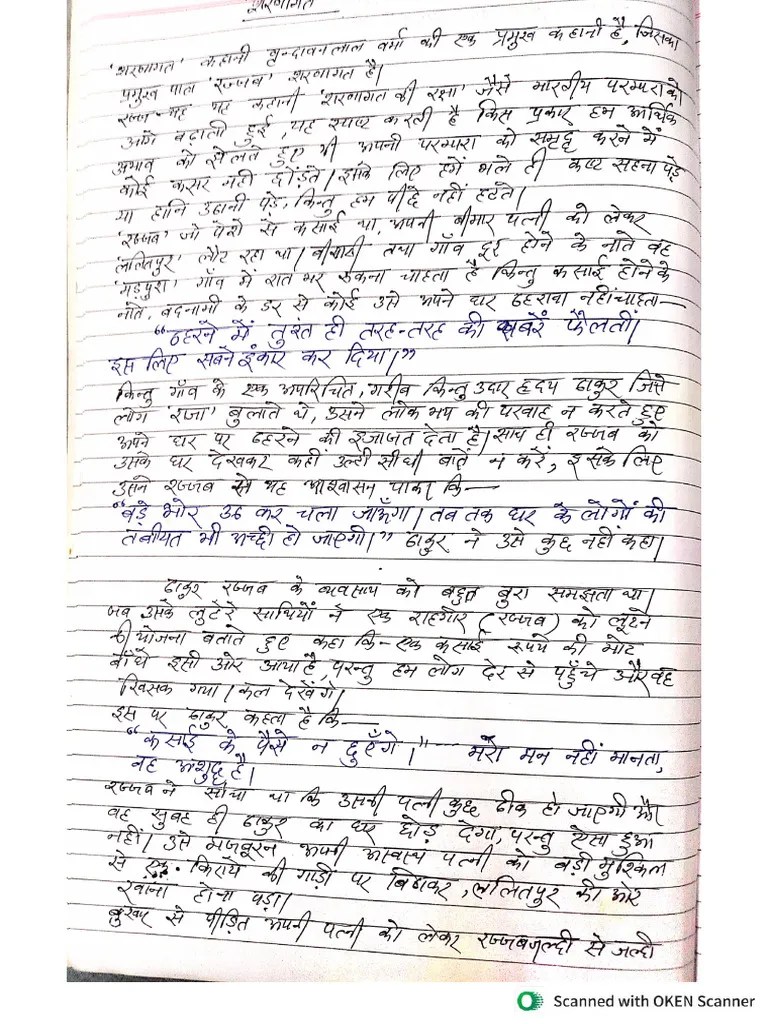 शरणागत
'शरणागत' कहानी वृन्दावनलाल वर्मा की एक प्रमुख कहानी है, जिसका
प्रमुख पात्र 'रज्जब' शरणागत है।
रज्ज यह कहानी 'शरणागत की रक्षा' जैसे भारतीय परम्परा को
आगे बढ़ाती हुई, यह स्पष्ट करती है किस प्रकार हम आर्थिक
अभाव को झेलते हुए भी अपनी परम्परा को समृद्ध करने में
कोई कसर नहीं छोड़ते। इसके लिए हमें भले ही कष्ट सहना पड़े
या हानि उठानी पड़े, किन्तु हम पीछे नहीं हटते।
'रज्जब' जो पेशे से कसाई था, अपनी बीमार पत्नी को लेकर
'ललितपुर' लौट रहा था। बीमारी तथा गाँव दूर होने के नाते वह
'मड़पुरा' गाँव में रात भर रुकना चाहता है किन्तु कसाई होने के
नाते, बदनामी के डर से कोई उसे अपने घर ठहराना नहीं चाहता—
"ठहरने में तुरंत ही तरह-तरह की खबरें फैलतीं।
इस लिए सबने इंकार कर दिया।"
किन्तु गाँव के एक अपरिचित, गरीब किन्तु उदार हृदय ठाकुर जिसे
लोग 'राजा' बुलाते थे, उसने लोक भय की परवाह न करते हुए
अपने घर पर ठहरने की इजाजत देता है। साथ ही रज्जब को
उसके घर देखकर कहीं उल्टी सीधी बातें न करें, इसके लिए
उसने रज्जब से यह आश्वासन चाहा कि—
"बड़े भोर उठ कर चला जाऊँगा। तब तक घर के लोगों की
तबीयत भी अच्छी हो जाएगी।" ठाकुर ने उसे कुछ नहीं कहा।
ठाकुर रज्जब के व्यवसाय को बहुत बुरा समझता था।
जब उसके लुटेरे साथियों ने एक राहगीर (रज्जब) को लूटने
की योजना बताते हुए कहा कि- एक कसाई रूपये की मोट
बाँधे इसी ओर आया है, परन्तु हम लोग देर से पहुँचे और वह
खिसक गया। कल देखेंगे।
इस पर ठाकुर कहता है कि—
"कसाई के पैसे न छुएँगे।" मेरा मन नहीं मानता,
वह अशुद्ध है।
रज्जब ने सोचा था कि उसकी पत्नी कुछ ठीक हो जाएगी और
वह सुबह ही ठाकुर का घर छोड़ देगा, परन्तु ऐसा हुआ
नहीं। उसे मजबूरन अपनी अस्वस्थ पत्नी को बड़ी मुश्किल
से एक किराये की गाड़ी पर बिठाकर, ललितपुर की ओर
रवाना होना पड़ा।
बुखार से पीड़ित अपनी पत्नी को लेकर रज्जब जल्दी से जल्दी
Scanned with OKEN Scanner